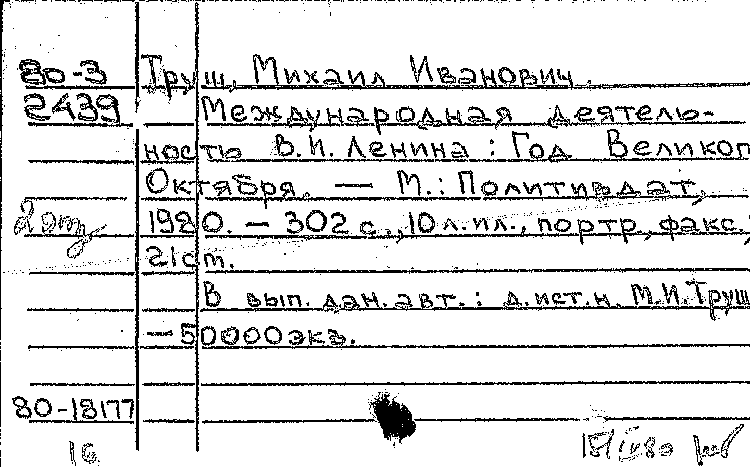 80-3 Труш, Михаил Иванович.
2439 Международная деятель-
ность В.И. Ленина : Год Великог
Октября. — М.: Политиздат,
2 отд 1980. — 302 с., 10 л. ил., портр, факс.;
21 см.
В вып. дан. авт.: д. ист. н. М.И. Труш
— 50000 экз.
80-18177
16 15/IV 80